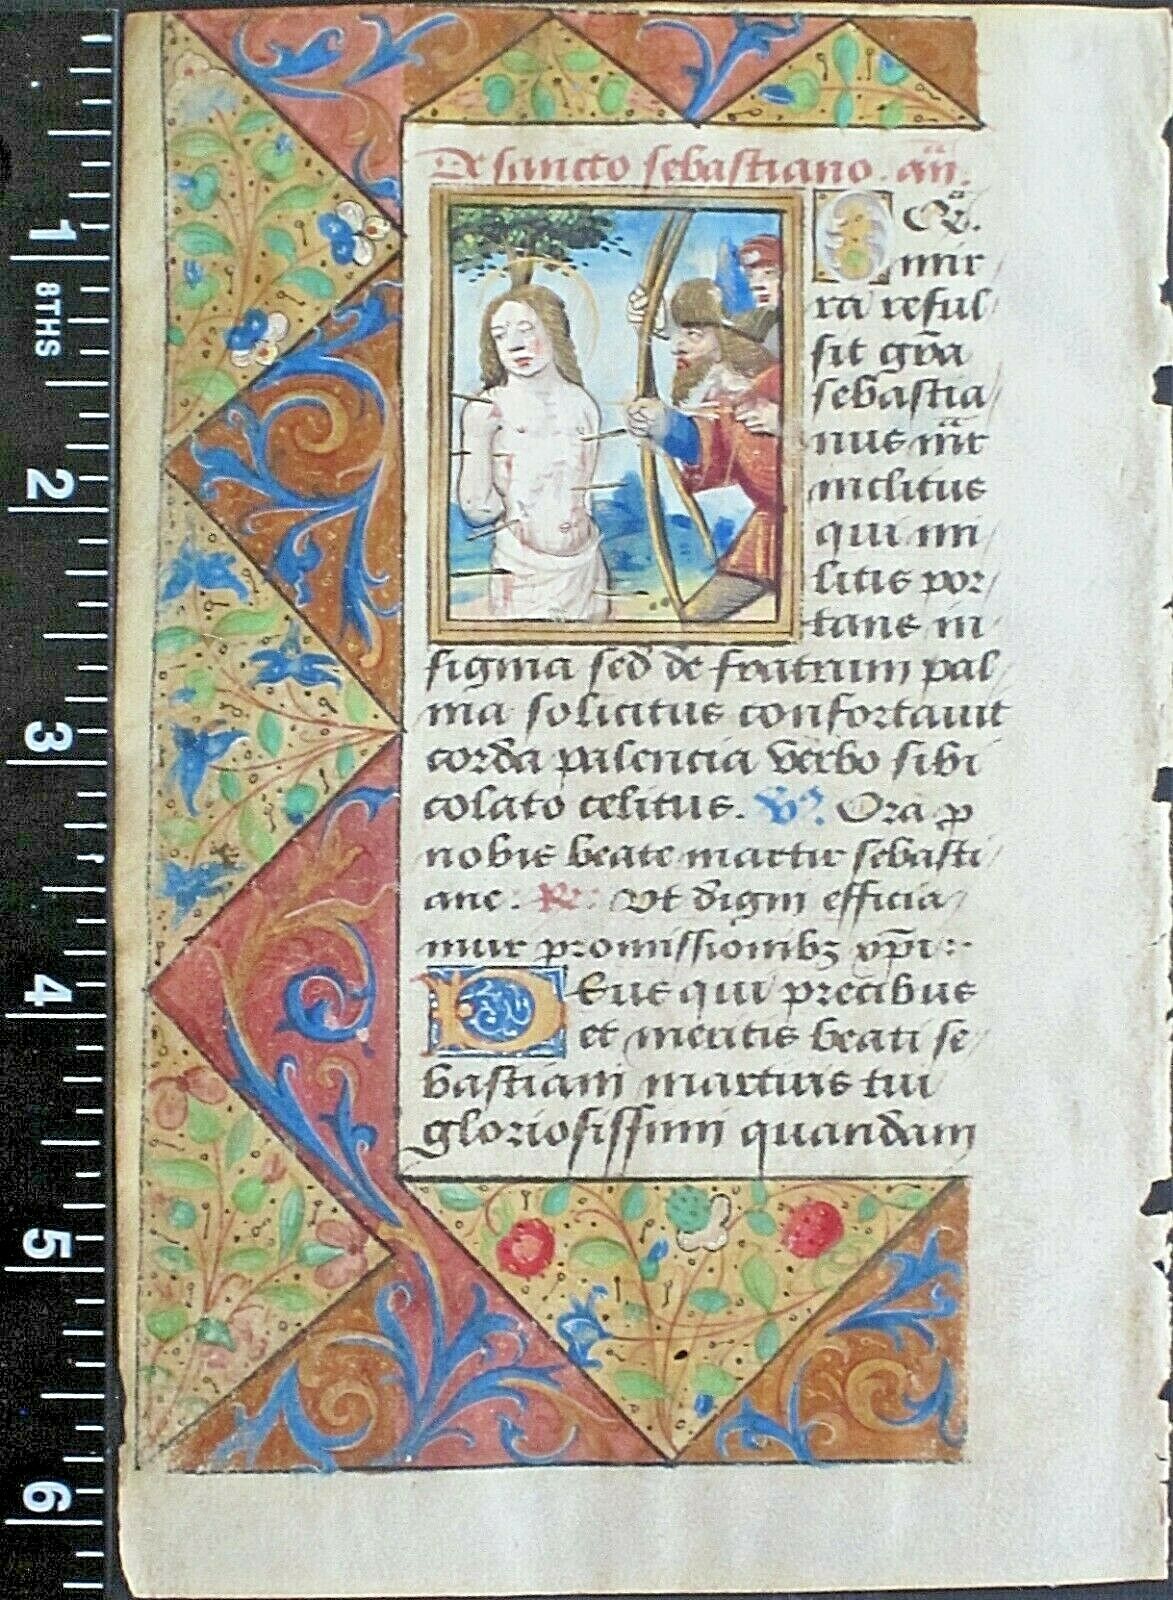 De sancto sebastiano. an̄.
O Q̄.
mir
ra reful/
sit gr̄a
sebastia/
nus mr̄t
inclitus
qui mi/
litis por/
tans in/
signia sed de fratrum pal/
ma solicitus confortauit
corda palencia verbo sibi
colato celitus. V̓. Ora p
nobis beate martir sebasti/
ane: R: Ut digni efficia/
mur promissionibꝫ xp̄i:
DEus qui precibus
et meritis beati se/
bastiani martiris tui
gloriosissimi quandam
1
8THS
2
3
4
5
6